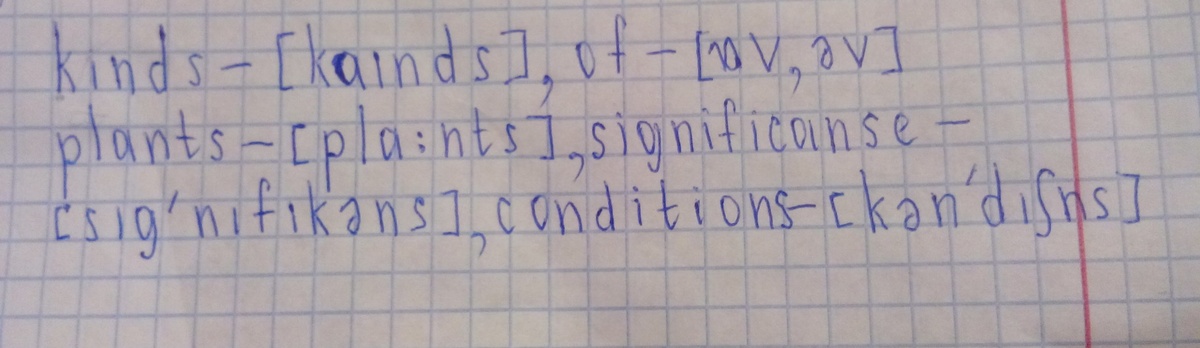 kinds-[kaınds], of-[ɒv, əv]
plants-[pla:nts], significanse-
[sıg'nıfıkəns], conditions-[kən'dıʃns]